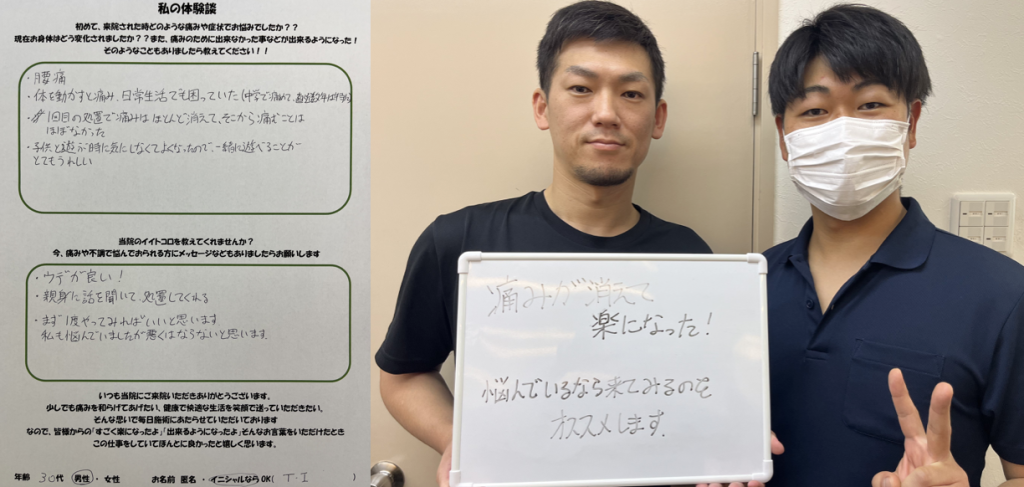 私の体験談
初めて、来院された時どのような痛みや症状でお悩みでしたか？？
現在お身体はどう変化されましたか？？また、痛みのために出来なかった事などが出来るようになった！
そのようなこともありましたら教えてください！！
・腰痛
・体を動かすと痛み、日常生活でも困っていた(中学で痛めて、
・1回目の処置で痛みはほとんど消えて、そこから痛むことは
ほぼなかった
・子供と遊ぶ時に気にしなくてよくなったので、一緒に遊べることが
とてもうれしい
当院のイイトコロを教えてくれませんか？
今、痛みや不調で悩んでおられる方にメッセージなどもありましたらお願いします
・ウデが良い！
・親身に話を聞いて、処置してくれる
・まず1度やってみればいいと思います
私も悩んでいましたが悪くはならないと思います。
いつも当院にご来院いただきありがとうございます。
少しでも痛みを和らげてあげたい、健康で快適な生活を笑顔で送っていただきたい。
そんな思いで毎日施術にあたらせていただいております
なので、皆様からの「すごく楽になったよ」「出来るようになったよ」そんなお言葉をいただけたとき
この仕事をしていてほんとに良かったと嬉しく思います。
年齢 30代 男性・女性 お名前 匿名・イニシャルならOK( T・I )
痛みが消えて
楽になった！
悩んでいるなら来てみるのを
オススメします。